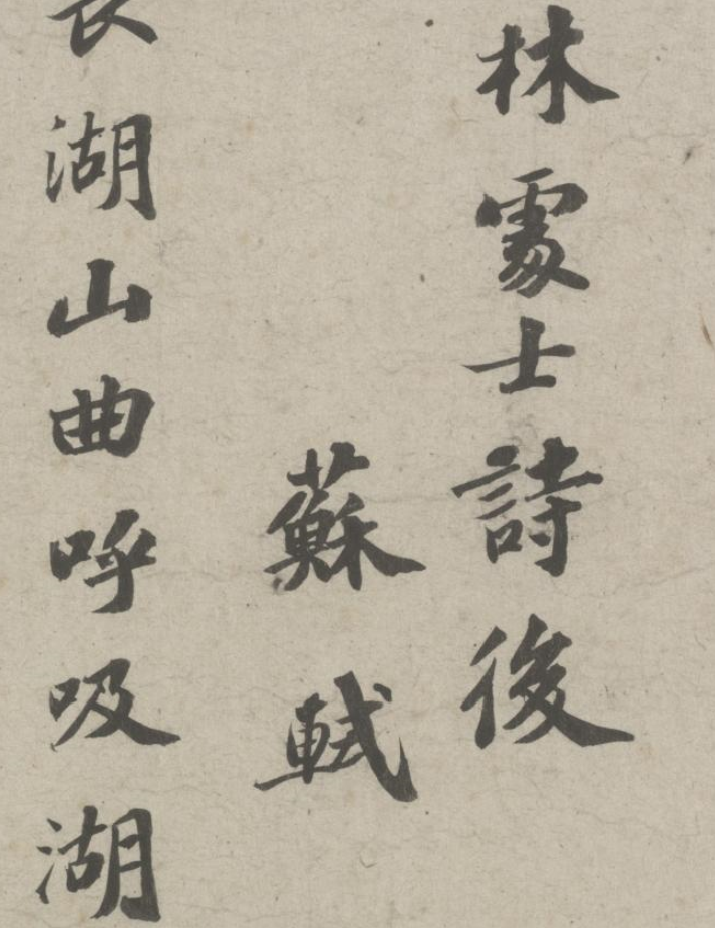 林處士詩後
蘇軾
長湖山曲呼吸湖